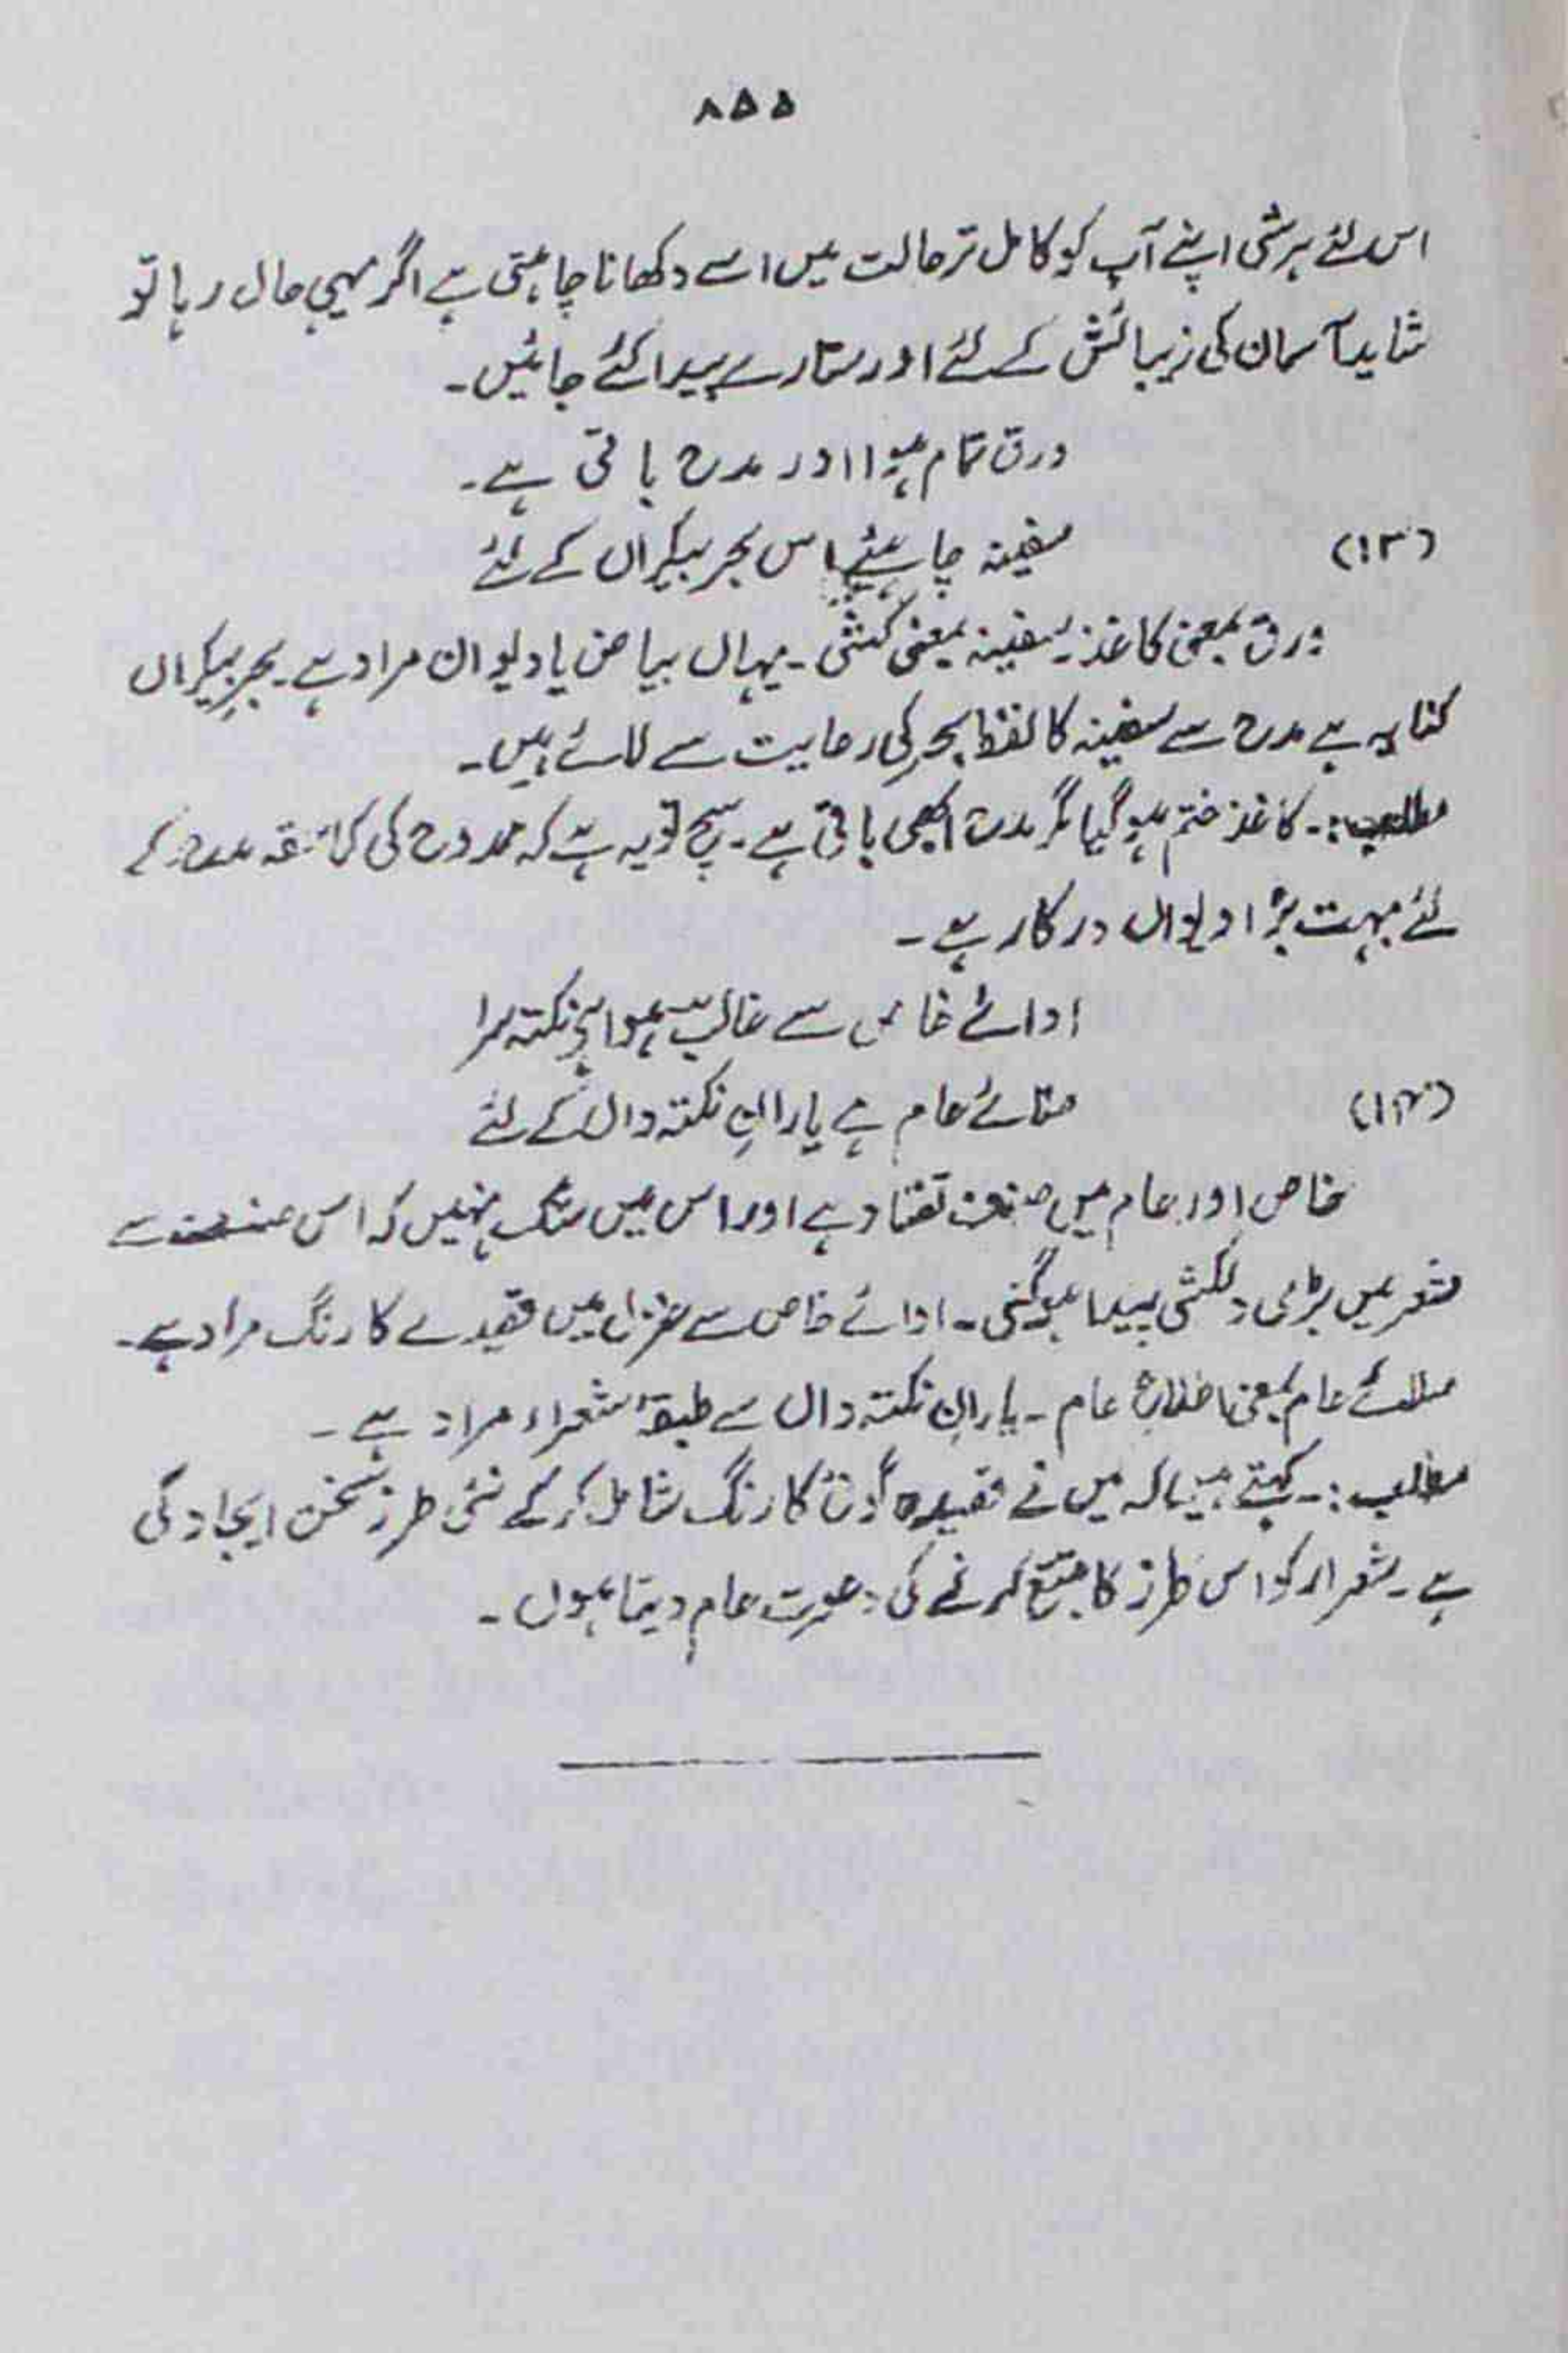 ۸۵۵
اس لئے ہرشی اپنے آپ کو کامل تر حالت میں اسے دکھانا چاہتی ہے اگر یہی حال رہا تو
شاید آسمان کی زیبائش کے لئے اور ستارے پیدا کئے جائیں۔
ورق تمام ہوا اور مدح باقی ہے۔
(۱۳) سفینہ چاہیئے اس بحر بیکراں کے لئے
ورق بمعنی کاغذ۔ سفینہ بمعنی کشتی۔ یہاں بیاض یا دیوان مراد ہے۔ بحرِ بیکراں
کنایہ ہے مدح سے سفینہ کا لفظ بحر کی رعایت سے لائے ہیں۔
مطلب:۔ کاغذ ختم ہو گیا مگر مدح ابھی باقی ہے۔ سچ تو یہ ہے کہ ممدوح کی کما حقہ مدح کے
لئے بہت بڑا دیوان درکار ہے۔
ادائے خاص سے غالبؔ ہوا ہے نکتہ سرا
(۱۴) صلائے عام ہے یارانِ نکتہ داں کے لئے
خاص اور عام میں صنعت تضاد ہے اور اس میں شک نہیں کہ اس صنعت سے
شعر میں بڑی دلکشی پیدا ہو گئی۔ ادائے خاص سے غزل میں قصیدے کا رنگ مراد ہے۔
صلائے عام بمعنی عام۔ یارانِ نکتہ داں سے طبقۂ شعراء مراد ہے۔
مطلب:۔ کہتے ہیں کہ میں نے قصیدہ کا رنگ شامل کر کے نئی طرز سخن ایجاد کی
ہے۔ شعراء کو اس طرز کا تتبع کرنے کی دعوت عام دیتا ہوں۔